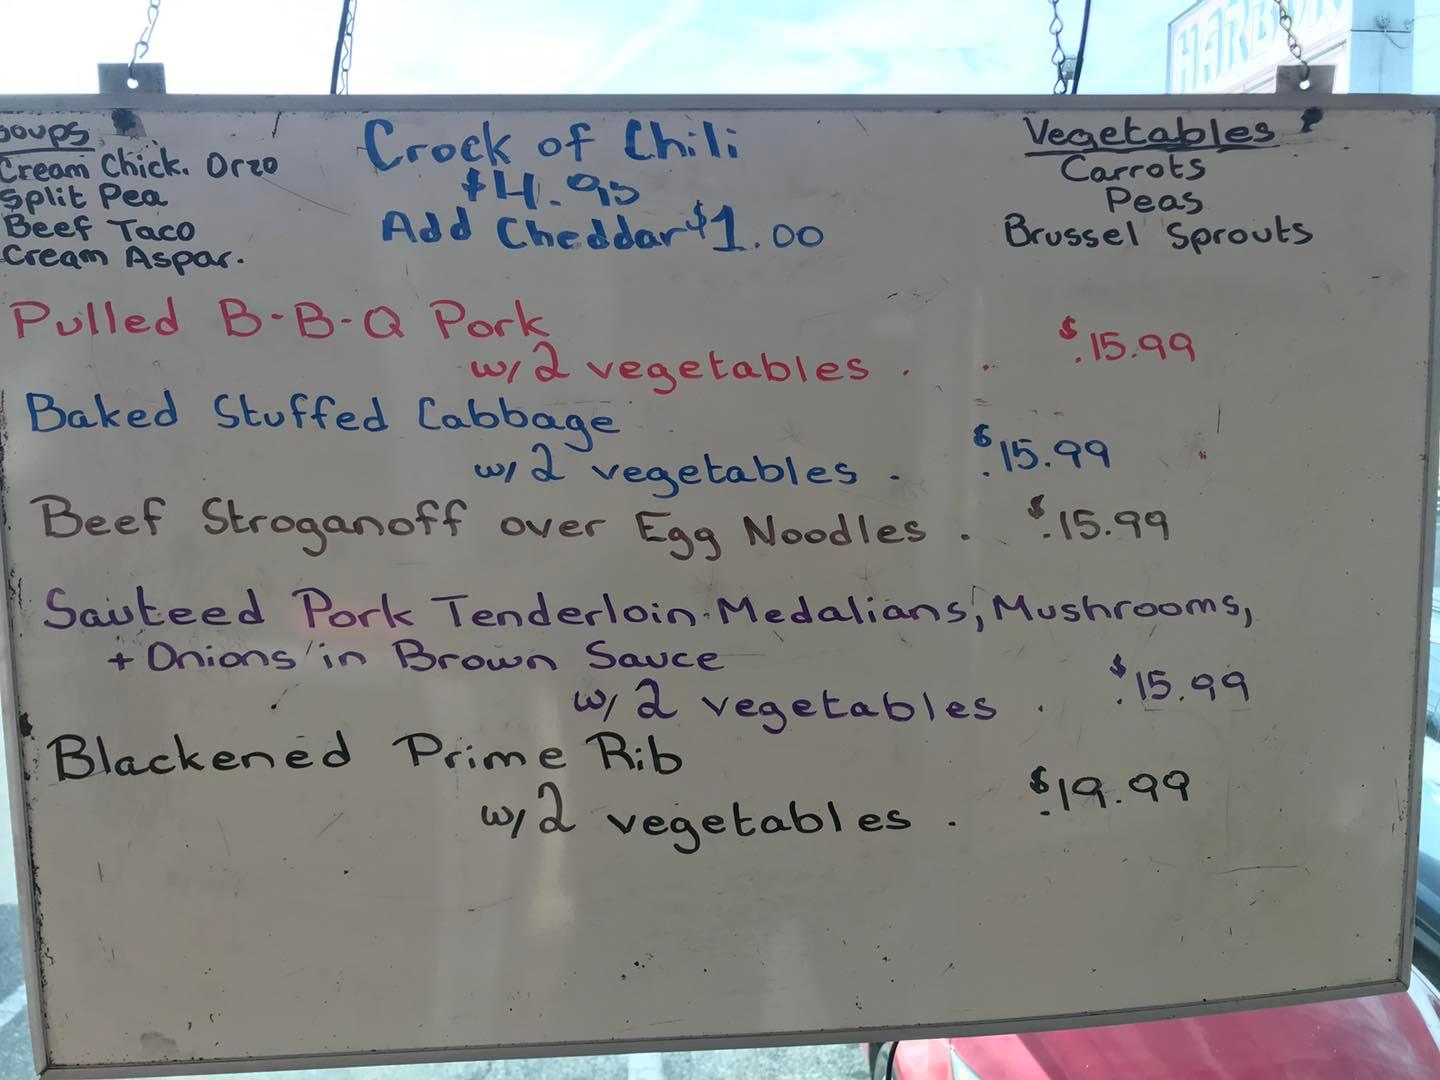 Soups
Cream Chick. Orzo
Split Pea
Beef Taco
Cream Aspar.
Crock of Chili
$4.95
Add Cheddar $1.00
Vegetables
Carrots
Peas
Brussel Sprouts
Pulled B-B-Q Pork
w/ 2 vegetables . . $15.99
Baked Stuffed Cabbage
w/ 2 vegetables . $15.99
Beef Stroganoff over Egg Noodles . $15.99
Sauteed Pork Tenderloin Medalians, Mushrooms,
+ Onions in Brown Sauce
w/ 2 vegetables . $15.99
Blackened Prime Rib
w/ 2 vegetables . $19.99